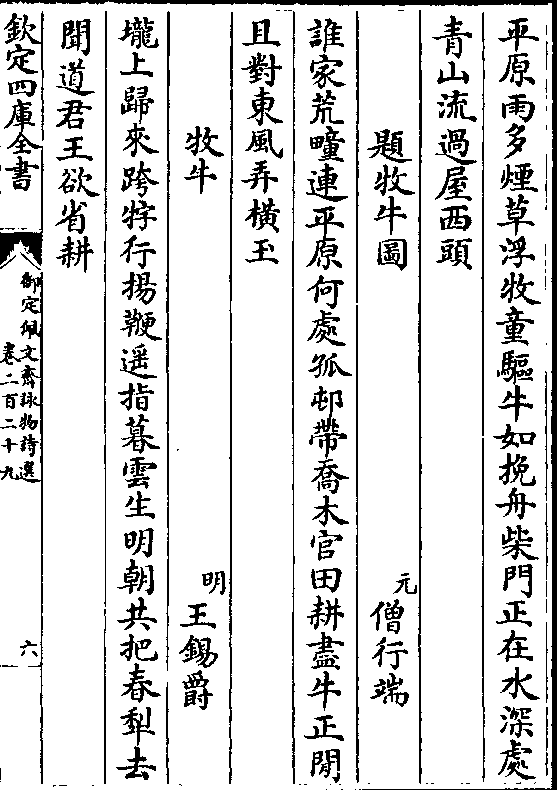 平原雨多煙草浮牧童驅牛如挽舟柴門正在水深處
青山流過屋西頭
題牧牛圖　元僧行端
誰家荒疃連平原何處孤邨帶喬木官田耕盡牛正閒
且對東風弄橫玉
牧牛　明王錫爵
壠上歸來跨牸行揚鞭遥指暮雲生明朝共把春犁去
聞道君王欲省耕
欽定四庫全書
御定佩文齋詠物詩選
卷二百二十九
六